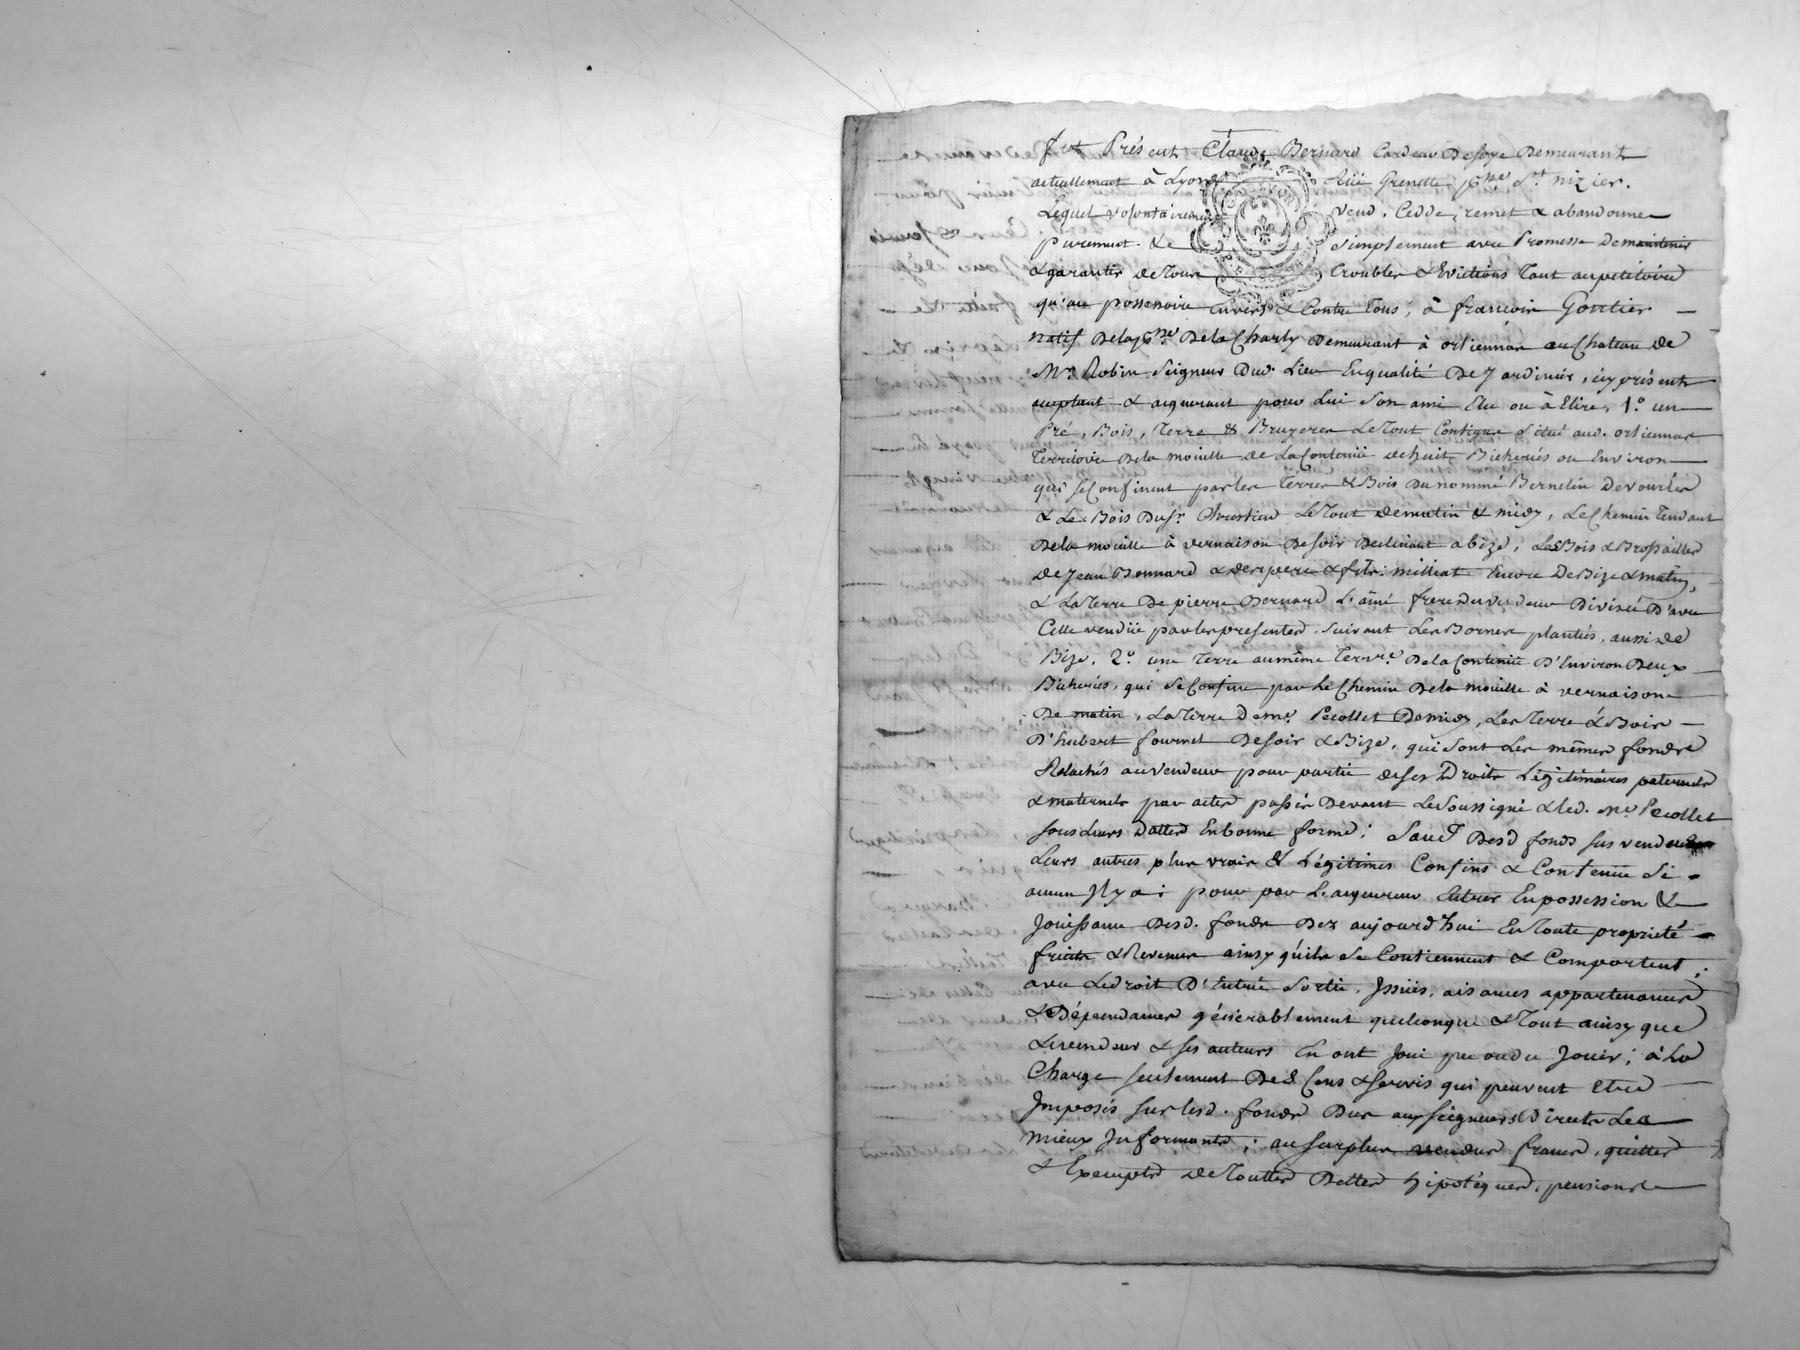 fut Présent Claude Bernard Cardeur De soye Demeurant
actuellement à Lyon Rüe Grenette psse St nizier.
Lequel volontairement vend, Cedde, remet & abandonne
purement & simplement avec Promesse De maintenir
& garantir de Tous Troubles & Evictions Tant au petitoire
qu'au possessoire Envers & Contre Tous, à francois Gontier
natif De la psse De la Charly Demeurant à orliennas au Chateau de
Mr. Robin Seigneur Dud. Lieu En qualité De Jardinier, icy présent
acceptant & aquerant pour Lui Son ami Elu ou à Elire, 1.º un
Pré, Bois, Terre & Bruyeres Le Tout Contigue Situé aud. orliennas
Territoire De la mouille de La Contenüe de huit Bicherées ou Environ
qui se Confinent par les Terres & Bois Du nommé Bernelin De
& Le Bois Du Sr. Le Tout de matin & midy, Le Chemin Tendant
De la mouille à vernaison De soir Declinant a bize, Les Bois & Brossailles
de Jean Bonnard & des pere & fils milliat Encore De Bize & matin,
& La Terre De pierre Bernard L'ainé frere du vendeur Divisée D'avec
Celle vendüe par les presentes. Suivant Les Bornes plantées, aussi de
Bize, 2.º une Terre au même Terre De la Contenüe D'Environ Deux
Bicherées, qui Se Confine par Le Chemin De la mouille à vernaison
De matin, La Terre de me. Pecollet De midy, Les Terre & Bois
D'hubert fournel De soir & Bize, qui sont Les mêmes fonds
Relachés au vendeur pour partie de ses Droits Légitimaires paternels
& maternels par actes passés Devant Le Soussigné & led. me. Pecollet
sous Leurs Dattes En bonne forme; Sauf Desd fonds sus vendus
Leurs autres plus vrais & Légitimes Confins & Contenüe Si
aucun Il y a; pour par L'aquereur Entrer En possession &
Jouissance Desd. fonds Dez aujourd'hui En Toute proprieté
fruits & Revenus ainsy qu'ils Se Contiennent & Comportent;
avec Le droit D'Entrée Sortie, Issües, aisances appartenances
& Dépendances généralement quelconque & Tout ainsy que
Le vendeur & ses auteurs En ont Joui pu ou du Jouir; à La
Charge seulement Des Cens & servis qui peuvent Etre
Imposés sur lesd. fonds Dus aux seigneurs Directs Les
mieux Informants; au surplus vendus francs, quittes
& Exempts de Touttes Dettes hipotéques, pensions